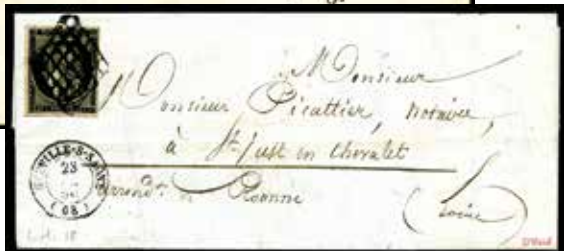 Monsieur
Monsieur Picattier, notaire,
à St. Just en Chevalet
arrondt. de Roanne
(Loire)
23
(68)